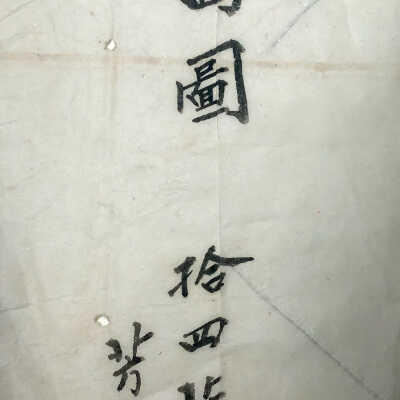 圖 拾四
芳